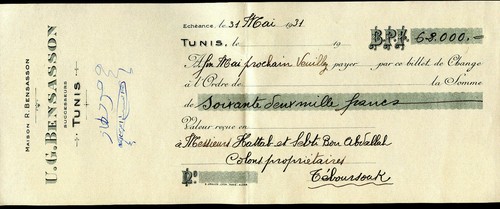 MAISON R. BENSASSON
U.G. BENSASSON
SUCCESSEURS
TUNIS
Echéance, le 31 Mai 1931
TUNIS, le 19
B.P.F. 62.000,-
A fin Mai prochain Veuillez payer par ce billet de Change
à l'Ordre de la Somme
de Soixante deux mille francs
Valeur reçue en
à Messieurs Hattab et Sebti Ben Abdallah
Colons propriétaires
Téboursouk